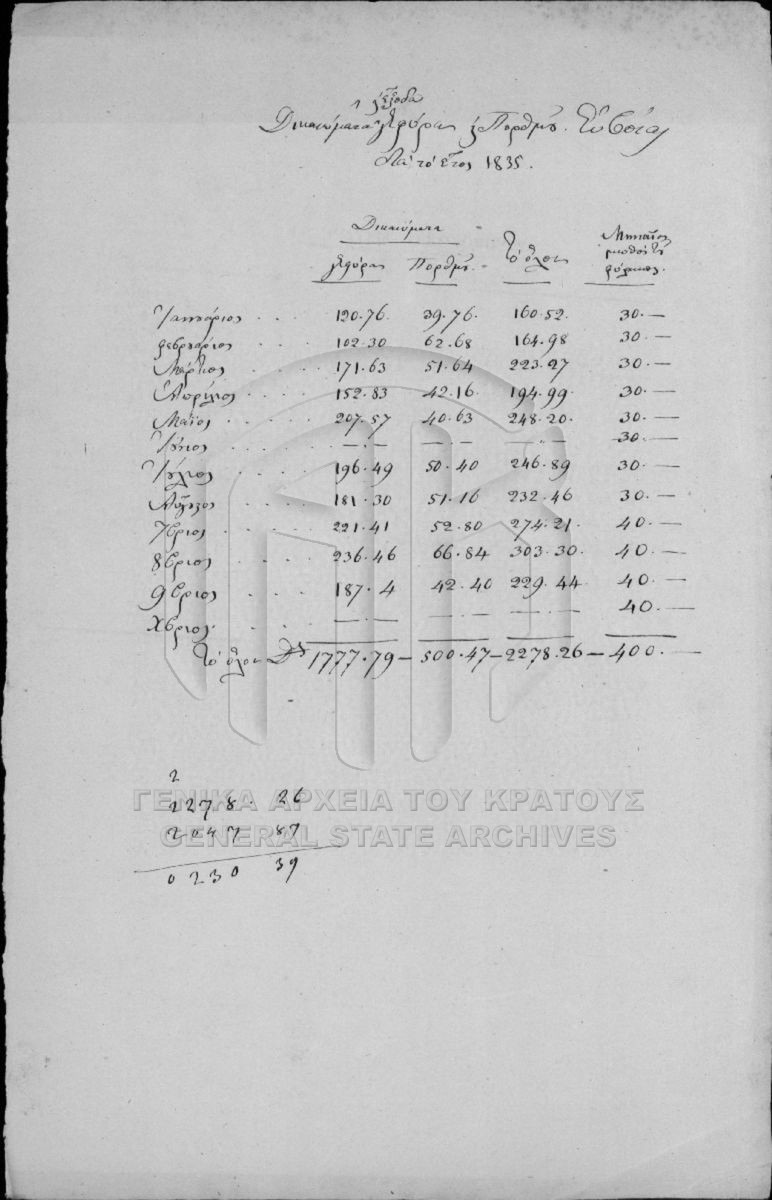 ἔξοδα
Δικαιώματα Γεφύρας καὶ Πορθμοῦ. Εὐβοίας
διὰ τὸ ἔτος 1835.
Δικαιώματα
Γεφύρας Πορθμοῦ. Τὸ ὅλον Μηνιαῖος
μισθὸς τοῦ
φύλακος.
Ἰαννουάριος . . . 120.76. 39.76. 160.52. 30.—
Φεβρουάριος . . . 102.30 62.68 164.98 30.—
Μάρτιος . . . . 171.63 51.64 223.27 30.—
Ἀπρίλιος . . . . 152.83 42.16. 194.99 30.—
Μάϊος . . . . 207.57 40.63 248.20. 30.—
Ἰούνιος . . . . — — — — — — 30.—
Ἰούλιος . . . . 196.49 50.40 246.89 30.—
Αὔγουστος . . . . 181.30 51.16 232.46 30.—
7βριος . . . . 221.41 52.80 274.21. 40.—
8βριος . . . . 236.46 66.84 303.30. 40.—
9βριος . . . . 187.4 42.40 229.44. 40.—
Χβριος. . . . . — — — — — — 40.—
Τὸ ὅλον Δρ 1777.79 — 500.47 — 2278.26 — 400.—
2
2278. 26
2047 87
0230 39
ΓΕΝΙΚΑ ΑΡΧΕΙΑ ΤΟΥ ΚΡΑΤΟΥΣ
GENERAL STATE ARCHIVES